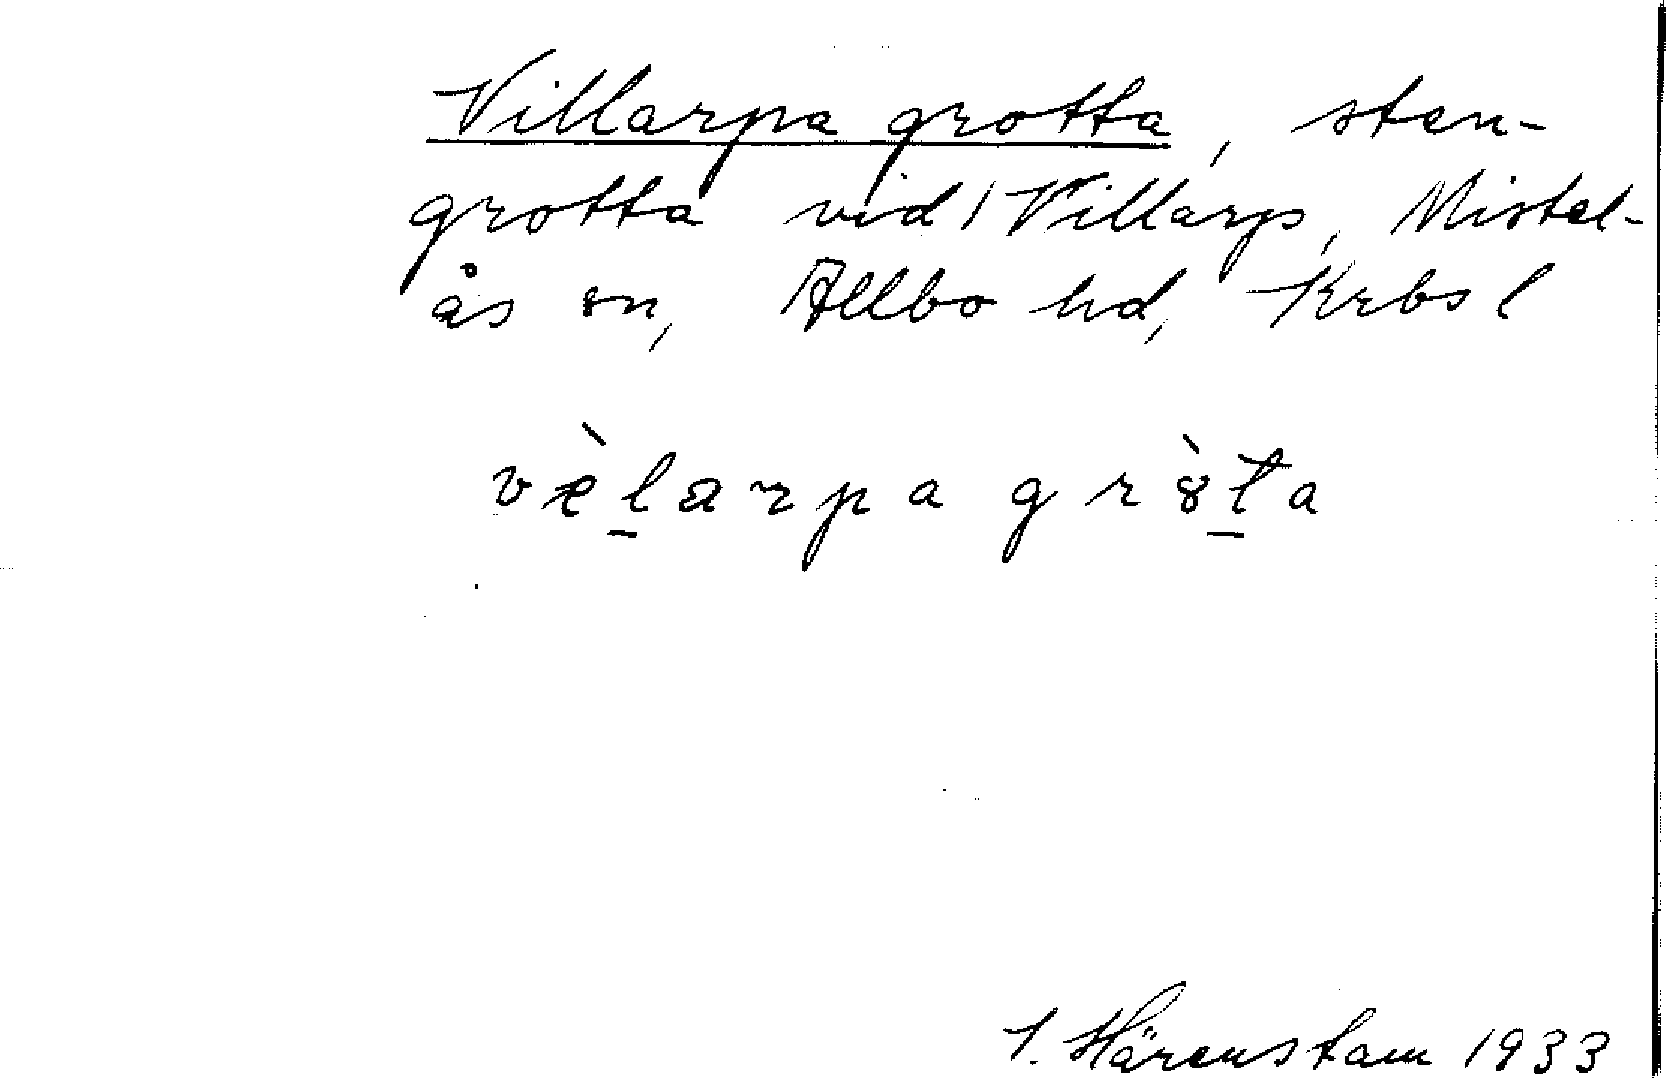 Villarpa grotta, sten-
grotta vid Villarp, Mistel-
ås sn, Allbo hd, Krbs l
vèl̲arpa gròt̲a
J. Härenstam 1933